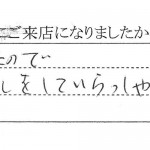 ご来店になりましたか
ので
しをしていらっしゃ